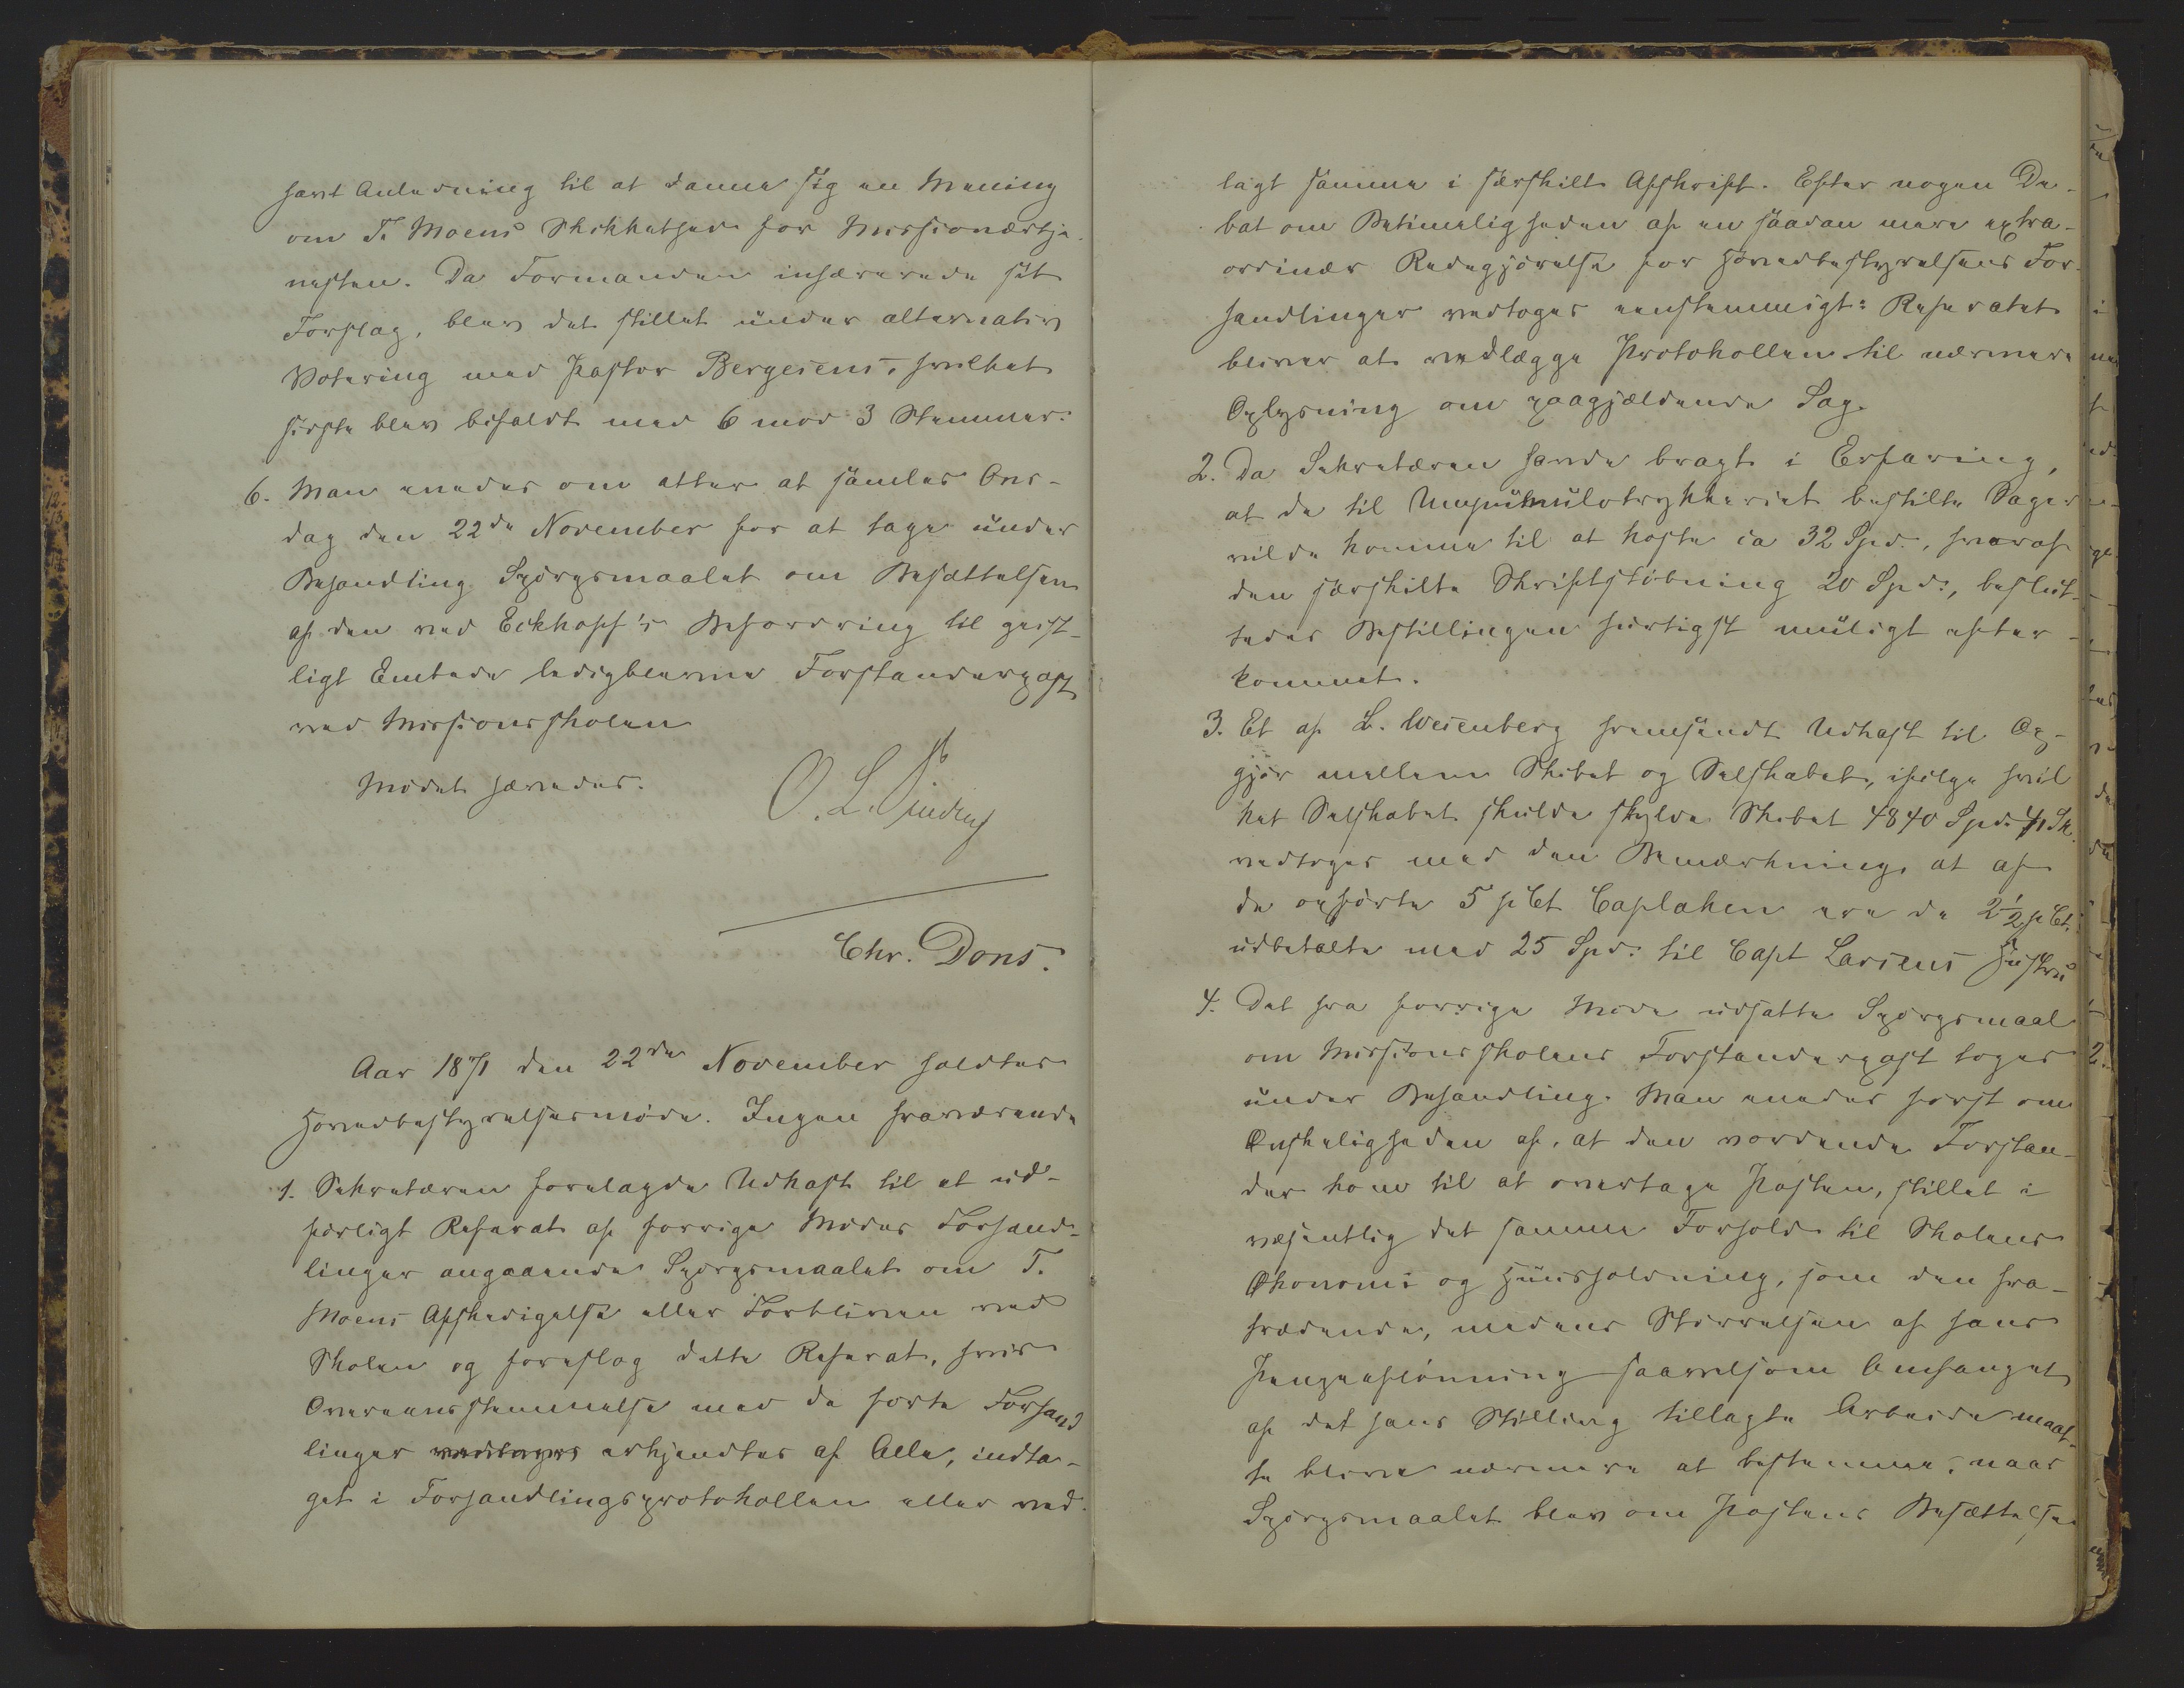 havt Anledning til at danne sig en Mening
om T. Moens Skikkethed for Missionærtje-
nesten. Da Formanden inhærerede sit
Forslag, blev det stillet under alternativ
Votering med Pastor Bergesens, hvilket
sidste blev bifaldt med 6 mod 3 Stemmer.
6. Man enedes om atter at samles Ons-
dag den 22de November for at tage under
Behandling Spörgsmaalet om Besættelsen
af den ved Eckhoff's Befordring til geist-
ligt Embede ledigblevne Forstanderpost
ved Missionsskolen
Mödet hævedes.
Chr. Dons.
Aar 1871 den 22de November holdtes
Hovedbestyrelsesmöde. Ingen fraværende
1. Sekretæren forelagde Udkast til et ud-
förligt Referat af forrige Mödes Forhand-
linger angaaende Spörgsmaalet om T.
Moens Afskedigelse eller Forbliven ved
Skolen og foreslog dette Referat, hvis
Overeensstemmelse med de förte Forhand
linger vedtoges erkjendtes af Alle, indta-
get i Forhandlingsprotokollen eller ved-
lagt samme i særskilt Afskrift. Efter nogen De-
bat om Betimeligheden af en saadan mere extra-
ordinær Redegjörelse for Hovedbestyrelsens For-
handlinger vedtoges eenstemmigt: Referatet
bliver at vedlægge Protokollen til nærmere
Oplysning om paagjældende Sag.
2. Da Sekretæren havde bragt i Erfaring,
at de til bestilte Sager
vilde komme til at koste ca 32 Spd., hvoraf
den særskilte Skriftstöbning 20 Spd., beslut-
tedes Bestillingen hurtigst muligt efter-
kommet.
3. Et af L. Wesenberg fremsendt Udkast til Op-
gjör mellem Skibet og Selskabet, ifölge hvil
ket Selskabet skulde skylde Skibet 4840 Spd. 41 Sk.
vedtoges med den Bemærkning, at af
de opförte 5 pCt Caplaken ere de 2½ pCt.
udbetalte med 25 Spd: til Capt Larsens Hustru
4. Det fra forrige Möde udsatte Spörgsmaal
om Missionsskolens Forstanderpost toges
under Behandling. Man enedes först om
Önskeligheden af, at den vordende Forstan-
der kom til at overtage Posten, stillet i
væsentlig det samme Forhold til Skolens
Økonomi og Huusholdning, som den fra-
trædende, medens Störrelsen af hans
Pengeaflönning saavelsom Omfanget
af det hans Stilling tillagte Arbeide maat-
te blive nærmere at bestemme, naar
Spörgsmaalet blev om Postens Besættelse